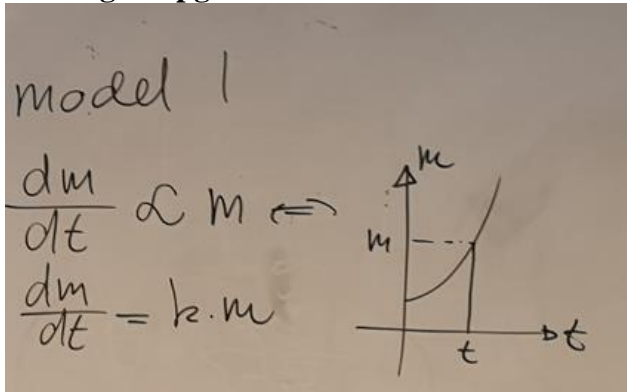 model 1
dm/dt ∝ m ⇔
dm/dt = k.m
m
m
t
t